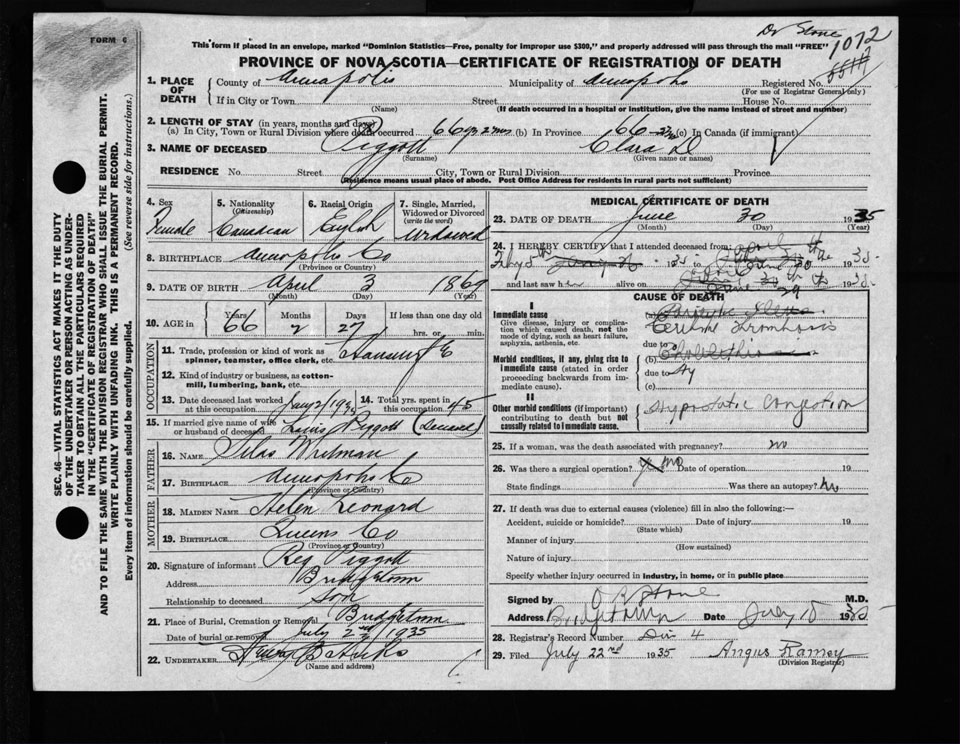 Dr Stone
1072
FORM 6
This form if placed in an envelope, marked "Dominion Statistics—Free, penalty for improper use $300," and properly addressed will pass through the mail "FREE"
PROVINCE OF NOVA SCOTIA—CERTIFICATE OF REGISTRATION OF DEATH
1. PLACE OF DEATH
County of Annapolis Municipality of Annapolis Registered No.
(For use of Registrar General only)
If in City or Town Street House No.
(Name) (If death occurred in a hospital or institution, give the name instead of street and number)
2. LENGTH OF STAY (in years, months and days)
(a) In City, Town or Rural Division where death occurred 66 yrs 2 mos (b) In Province 66 (c) In Canada (if immigrant)
3. NAME OF DECEASED Piggott Clara D
(Surname) (Given name or names)
RESIDENCE No. Street City, Town or Rural Division Province
(Residence means usual place of abode. Post Office Address for residents in rural parts not sufficient)
SEC. 46—VITAL STATISTICS ACT MAKES IT THE DUTY
OF THE UNDERTAKER OR PERSON ACTING AS UNDER-
TAKER TO OBTAIN ALL THE PARTICULARS REQUIRED
IN THE "CERTIFICATE OF REGISTRATION OF DEATH"
AND TO FILE THE SAME WITH THE DIVISION REGISTRAR WHO SHALL ISSUE THE BURIAL PERMIT.
WRITE PLAINLY WITH UNFADING INK. THIS IS A PERMANENT RECORD.
Every item of information should be carefully supplied. (See reverse side for instructions.)
4. Sex
Female
5. Nationality
(Citizenship)
Canadian
6. Racial Origin
English
7. Single, Married,
Widowed or Divorced
(write the word)
Widowed
8. BIRTHPLACE Annapolis Co
(Province or Country)
9. DATE OF BIRTH April 3 1869
(Month) (Day) (Year)
10. AGE in Years Months Days If less than one day old
66 2 27 hrs. or min.
OCCUPATION
11. Trade, profession or kind of work as
spinner, teamster, office clerk, etc.
12. Kind of industry or business, as cotton-
mill, lumbering, bank, etc.
13. Date deceased last worked
at this occupation
14. Total yrs. spent in
this occupation 45
15. If married give name of wife
or husband of deceased Piggott (Deceased)
FATHER
16. NAME Silas Whitman
17. BIRTHPLACE Annapolis Co
(Province or Country)
MOTHER
18. MAIDEN NAME Helen Leonard
19. BIRTHPLACE Queens Co
(Province or Country)
20. Signature of informant Reg Piggott
Address Bridgetown
Relationship to deceased Son
21. Place of Burial, Cremation or Removal Bridgetown
Date of burial or removal July 2nd 1935
22. UNDERTAKER
(Name and address)
MEDICAL CERTIFICATE OF DEATH
23. DATE OF DEATH June 30 1935
(Month) (Day) (Year)
24. I HEREBY CERTIFY that I attended deceased from
and last saw her alive on
CAUSE OF DEATH
I
Immediate cause
Give disease, injury or complica-
tion which caused death, not the
mode of dying, such as heart failure,
asphyxia, asthenia, etc.
(a)
Cerebral Thrombosis
due to
Morbid conditions, if any, giving rise to
immediate cause (stated in order
proceeding backwards from im-
mediate cause).
(b)
due to
(c)
II
Other morbid conditions (if important)
contributing to death but not
causally related to immediate cause.
Hypostatic Congestion
25. If a woman, was the death associated with pregnancy? no
26. Was there a surgical operation? no Date of operation 19
State findings Was there an autopsy? no
27. If death was due to external causes (violence) fill in also the following:—
Accident, suicide or homicide? Date of injury 19
(State which)
Manner of injury
(How sustained)
Nature of injury
Specify whether injury occurred in industry, in home, or in public place
Signed by Stone M.D.
Address Bridgetown Date July 18 1935
28. Registrar's Record Number Div 4
29. Filed July 22nd 1935 Angus Ramey
(Division Registrar)